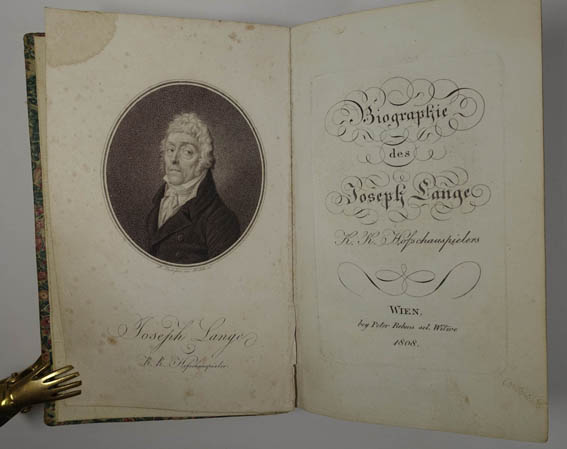 Joseph Lange
K. K. Hofschauspieler
Biographie
des
Joseph Lange
K. K. Hofschauspielers
WIEN.
bey Peter Rehms sel. Witwe
1808.